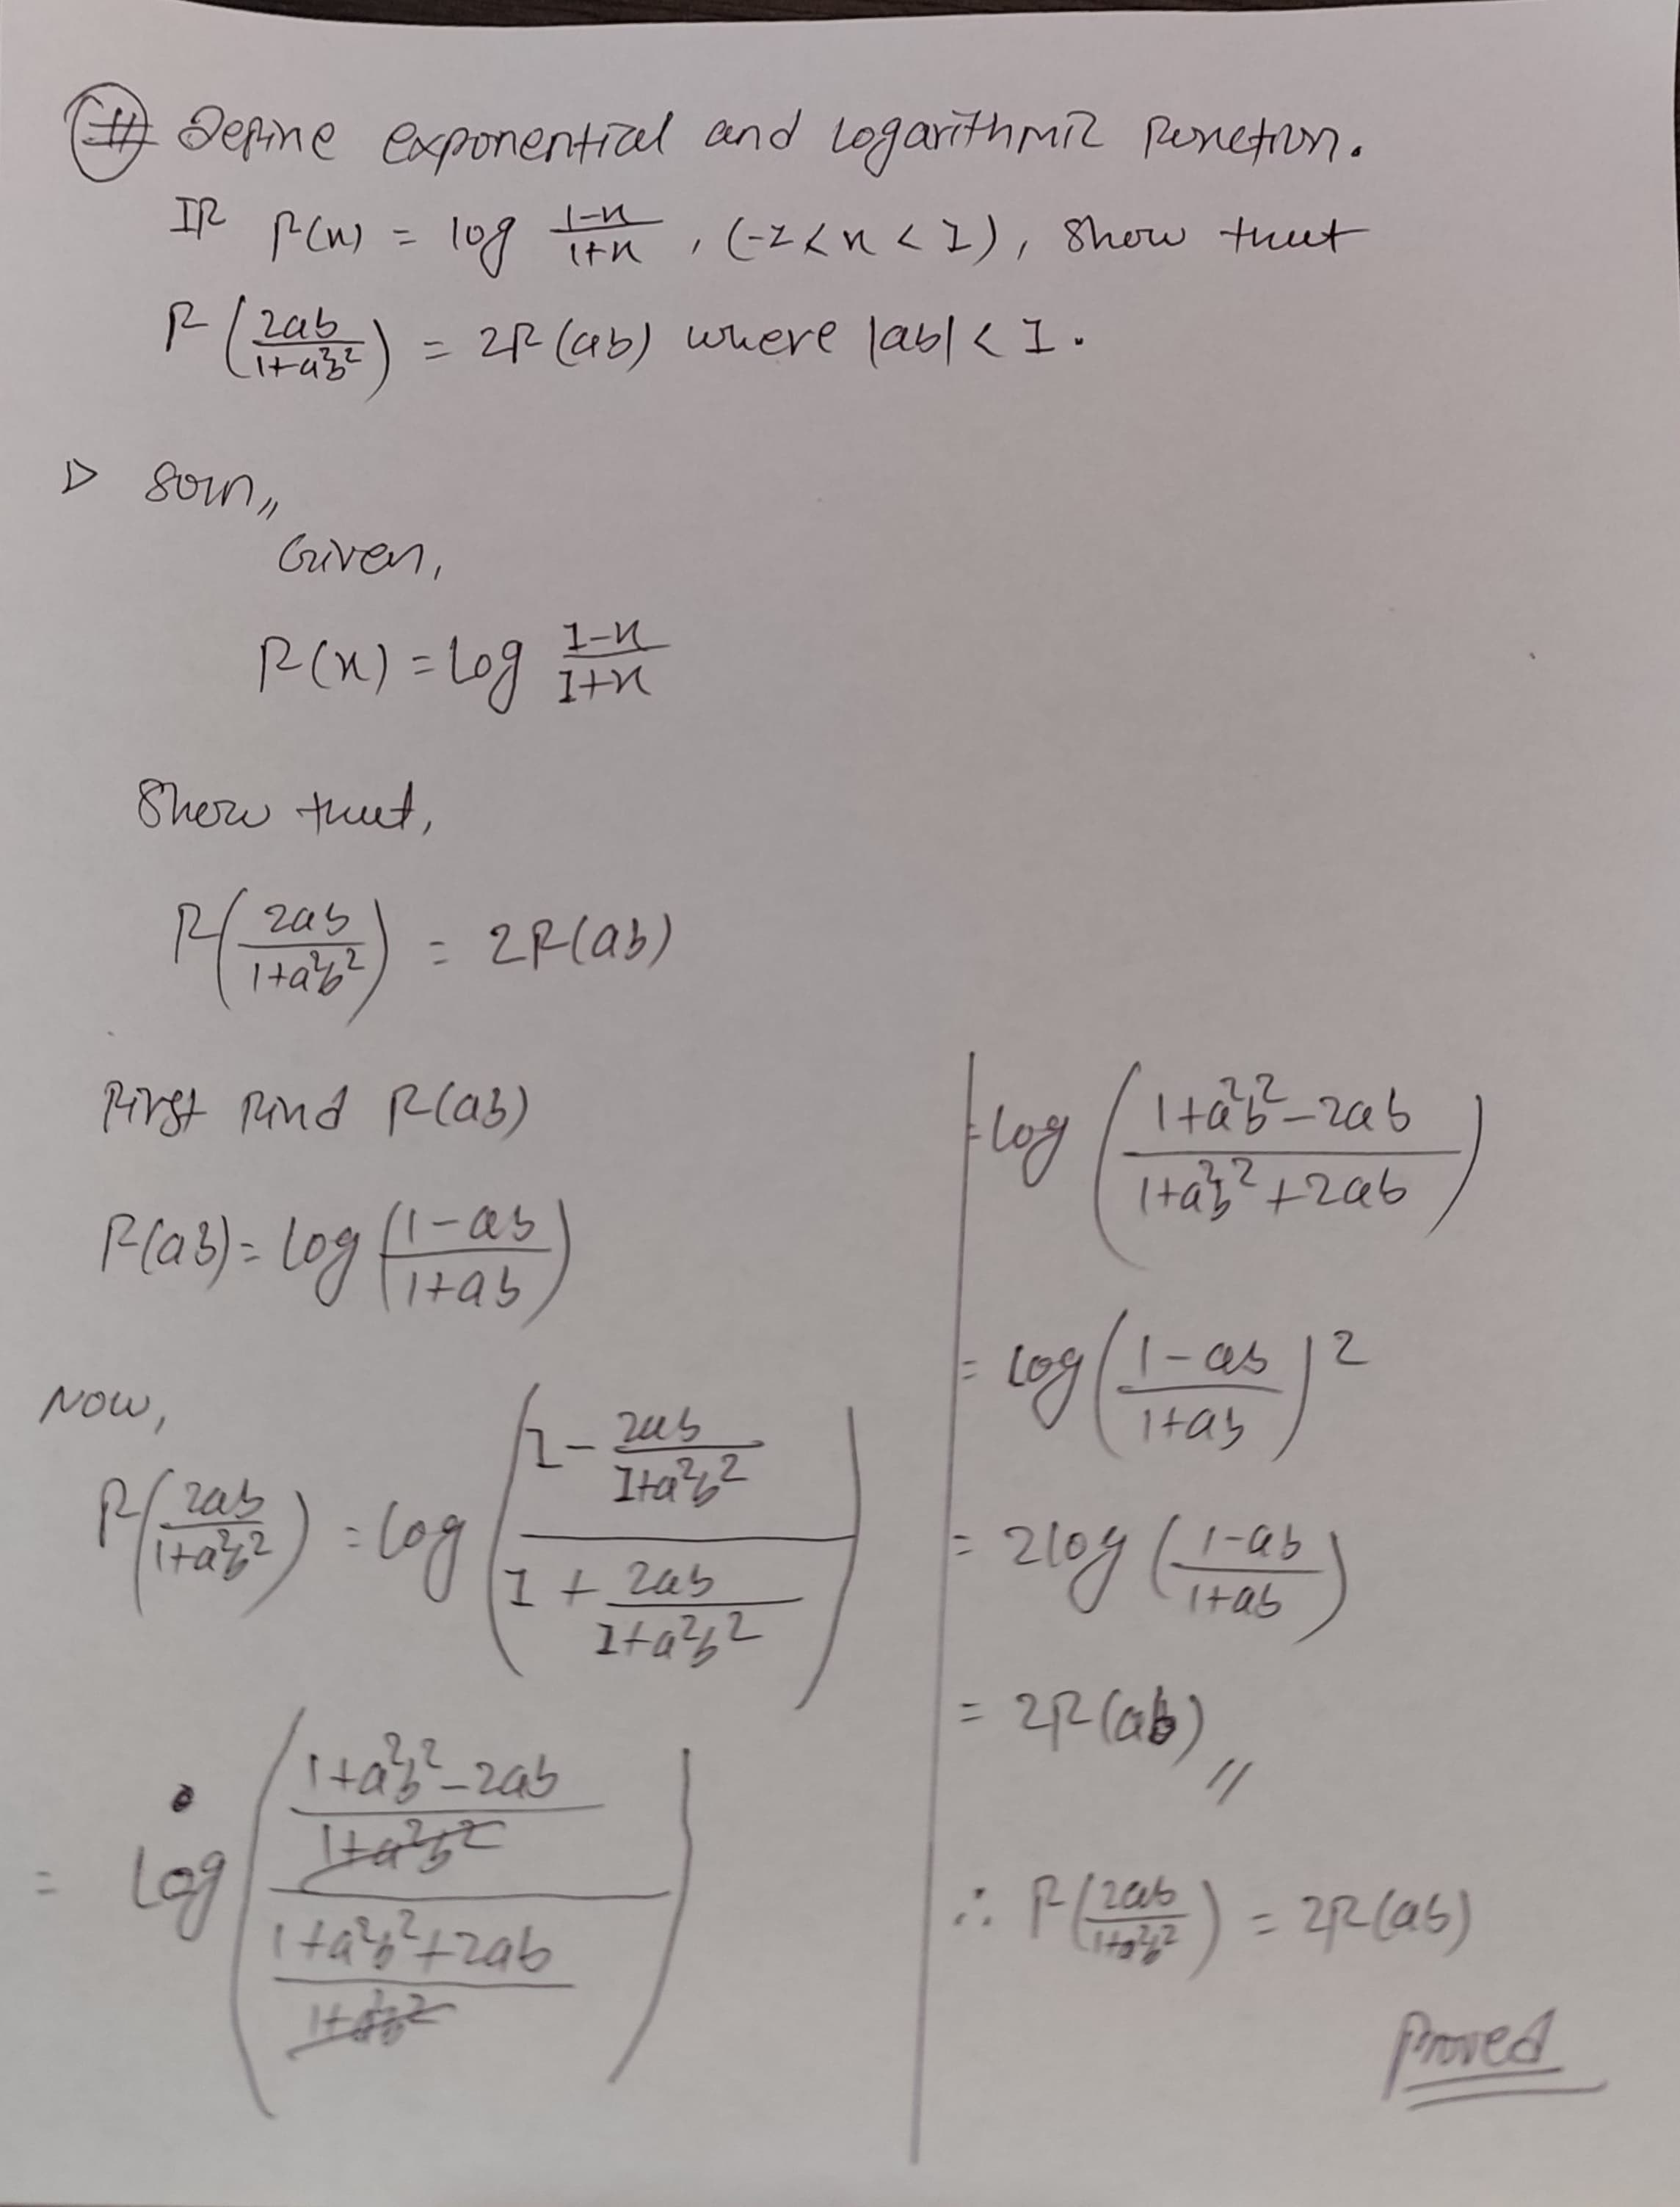 # Define exponential and logarithmic function.
If f(x) = log (1-x)/(1+x), (-1<x<1), show that
f(2ab/(1+a²b²)) = 2f(ab) where |ab| < 1.
▷ soln,,
Given,
f(x) = log (1-x)/(1+x)
Show that,
f(2ab/(1+a²b²)) = 2f(ab)
First find f(ab)
f(ab) = log((1-ab)/(1+ab))
Now,
f(2ab/(1+a²b²)) = log((1 - 2ab/(1+a²b²))/(1 + 2ab/(1+a²b²)))
= log(((1+a²b²-2ab)/(1+a²b²))/((1+a²b²+2ab)/(1+a²b²)))
= log((1+a²b²-2ab)/(1+a²b²+2ab))
= log((1-ab)/(1+ab))²
= 2log((1-ab)/(1+ab))
= 2f(ab),,
∴ f(2ab/(1+a²b²)) = 2f(ab)
Proved